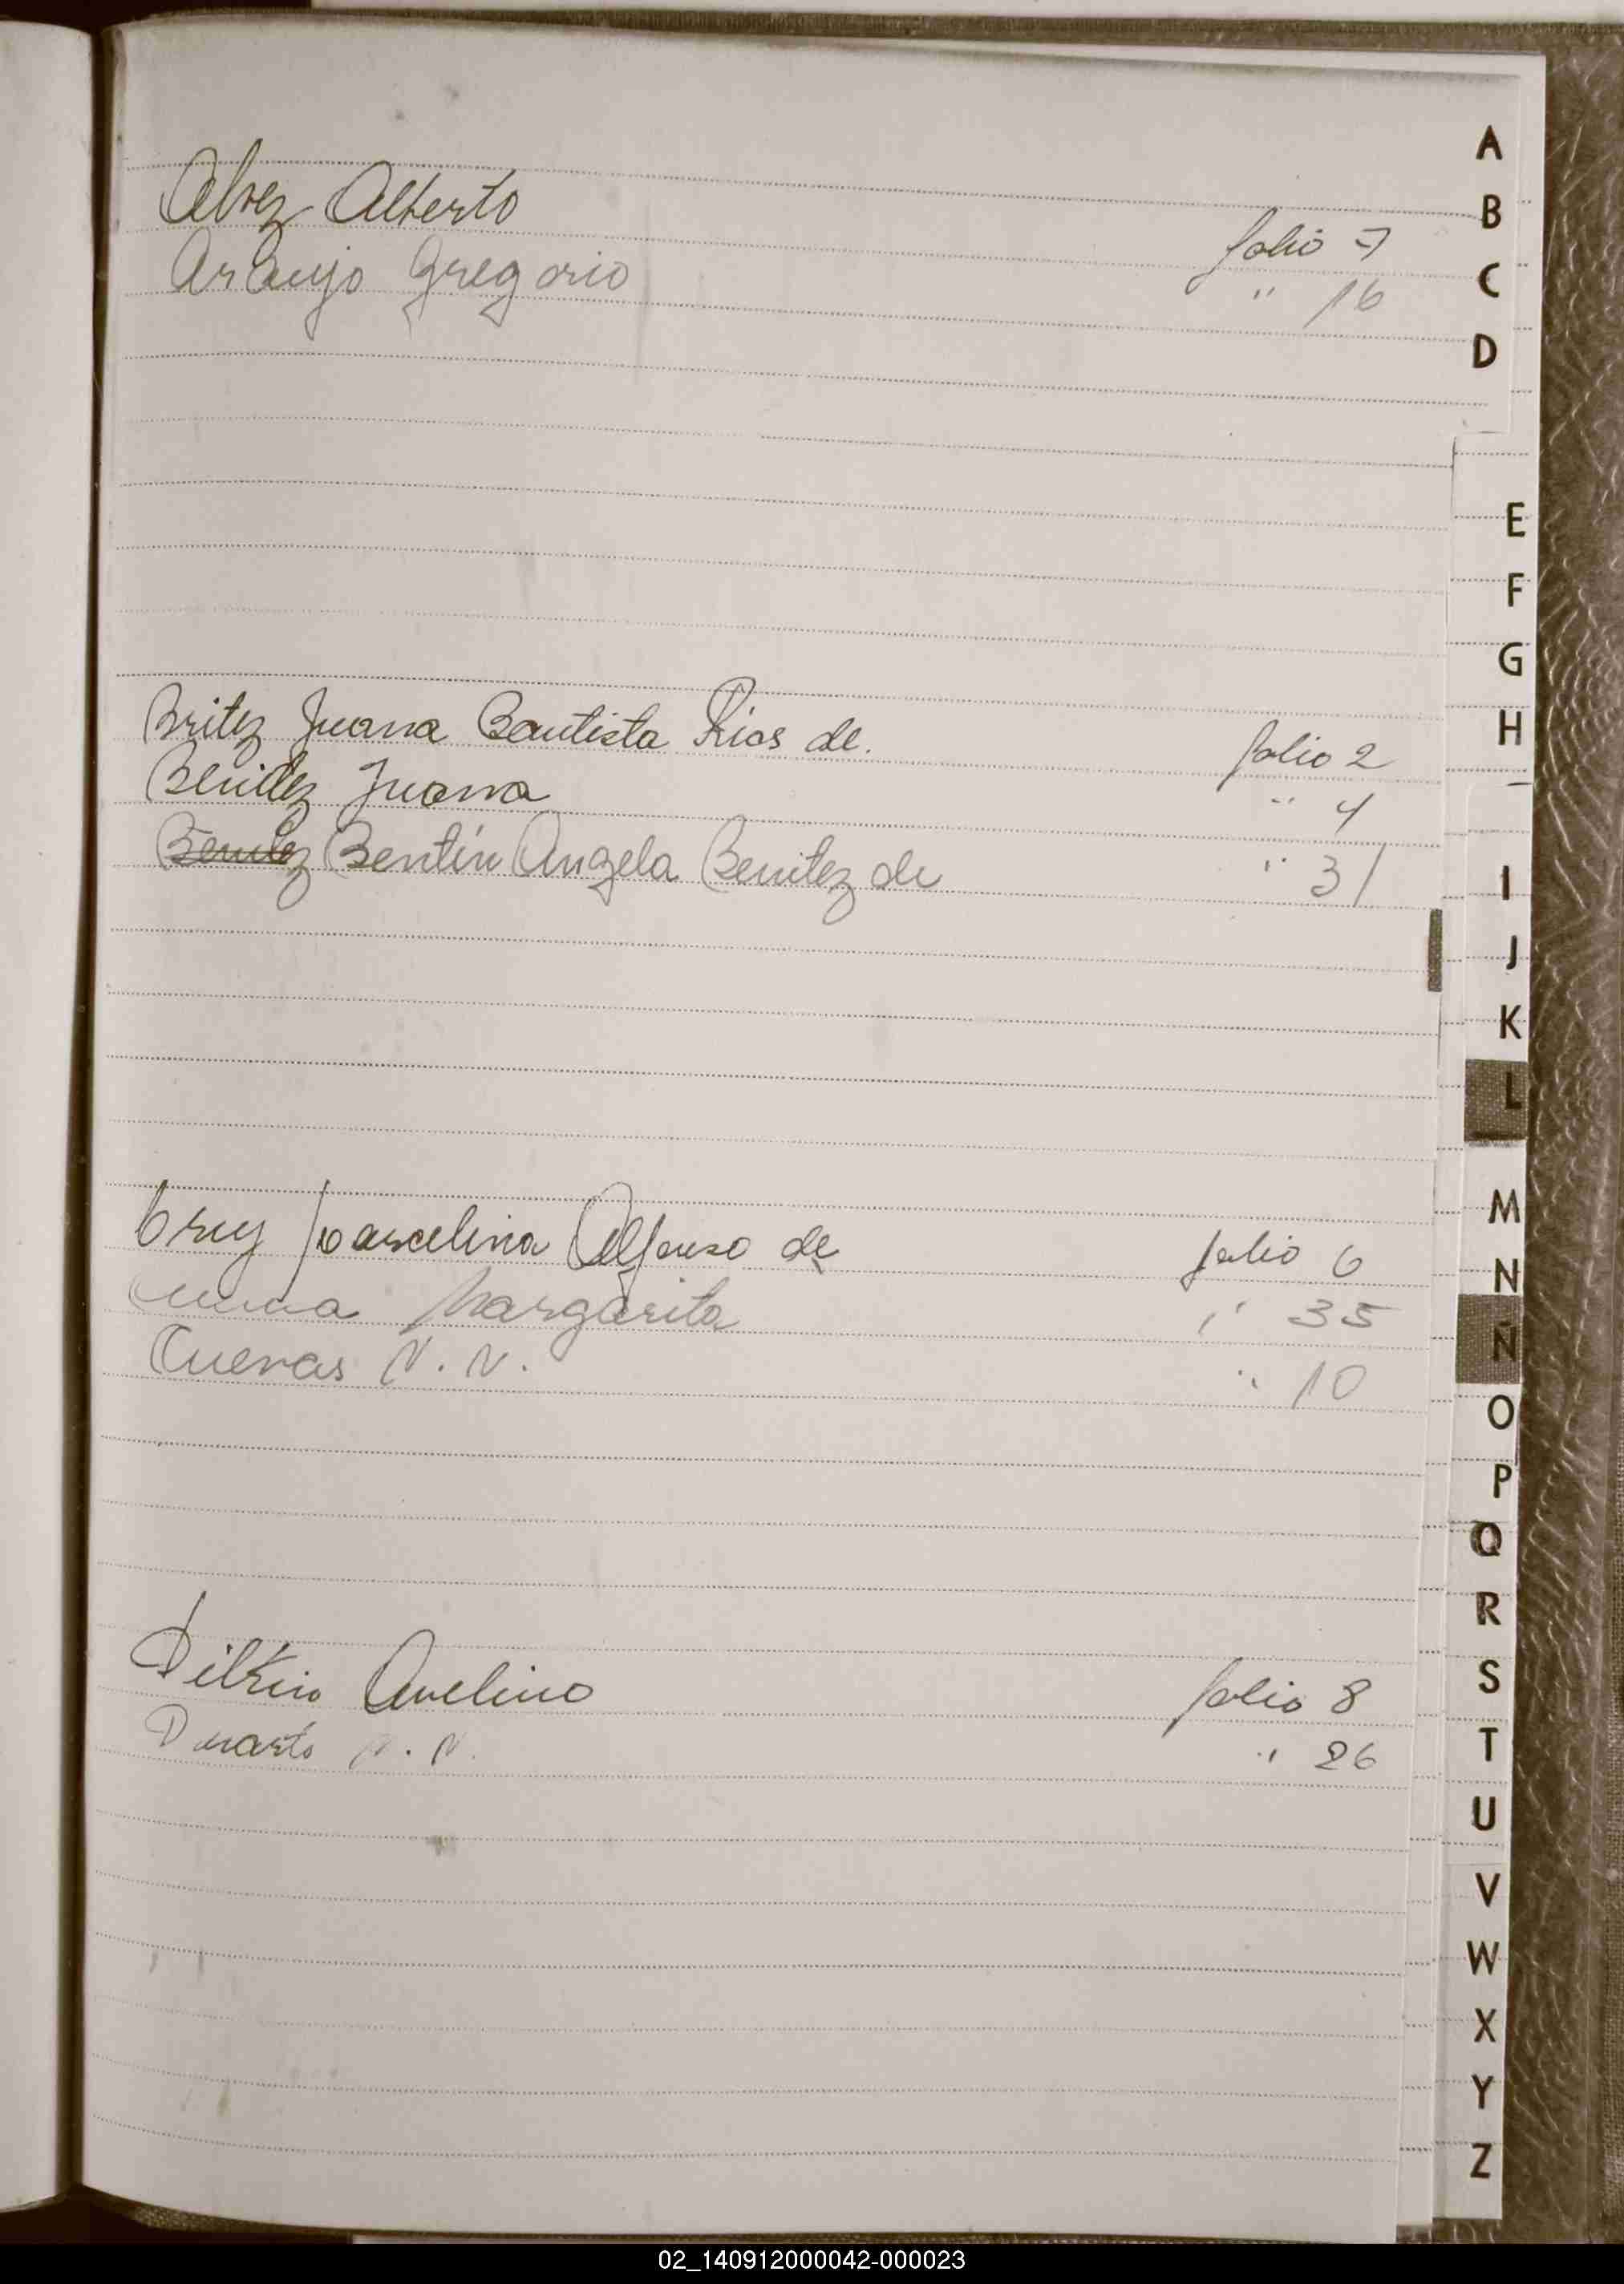 Alvez Alberto folio 7
Araujo Gregorio " 16
Britez Juana Bautista Rios de. folio 2
Benidez Juana " 4
Benitez Bentín Angela Benitez de " 31
Cruz Marcelina Alfonso de folio 6
Margarita " 35
Cuevas N. N. " 10
Dilkin Avelino folio 8
Duarte N. N. " 26
A
B
C
D
E
F
G
H
I
J
K
L
M
N
Ñ
O
P
Q
R
S
T
U
V
W
X
Y
Z
02_140912000042-000023